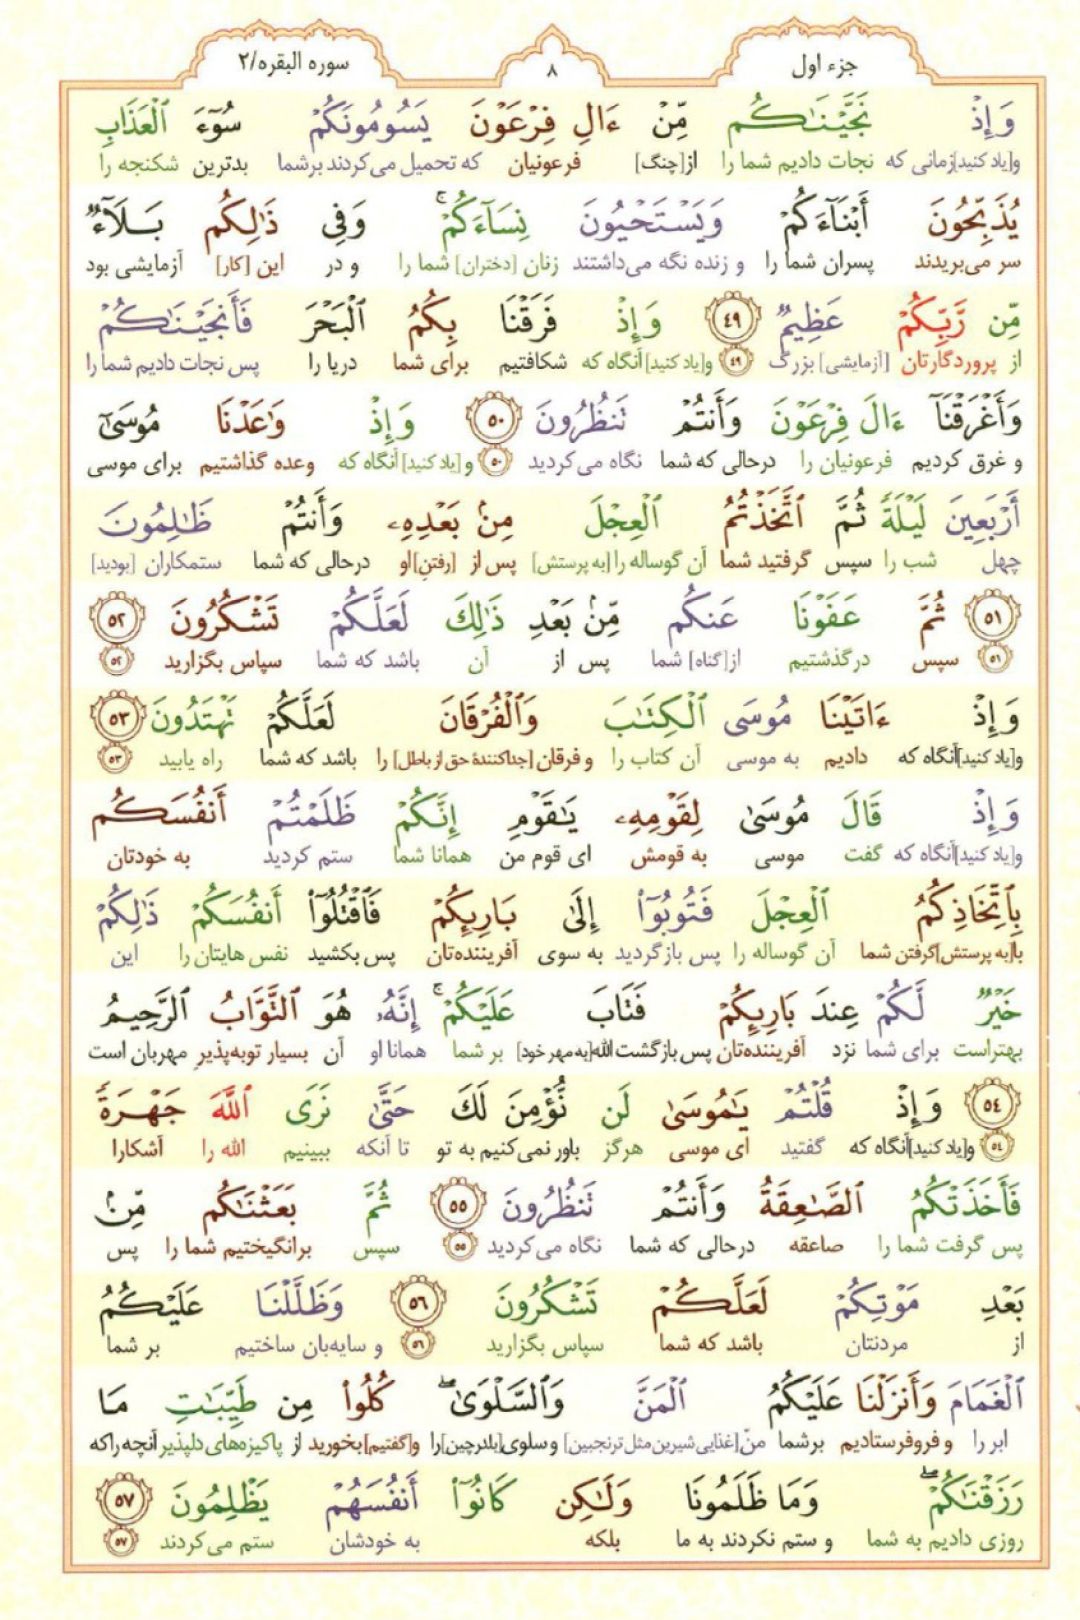 جزء اول ۸ سوره البقره/۲
وَ إِذْ نَجَّيْنَـٰكُم مِّنْ ءَالِ فِرْعَوْنَ يَسُومُونَكُمْ سُوٓءَ ٱلْعَذَابِ
و[یاد کنید]زمانی که نجات دادیم شما را از[چنگ] فرعونیان که تحمیل می‌کردند برشما بدترین شکنجه را
يُذَبِّحُونَ أَبْنَآءَكُمْ وَيَسْتَحْيُونَ نِسَآءَكُمْ ۚ وَفِي ذَٰلِكُم بَـلَآءٌ
سر می‌بریدند پسران شما را و زنده نگه می‌داشتند زنان [دختران] شما را و در این [کار] آزمایشی بود
مِّن رَّبِّكُمْ عَظِيمٌ ٤٩ وَ إِذْ فَرَقْنَا بِكُمُ ٱلْبَحْرَ فَأَنجَيْنَـٰكُمْ
از پروردگارتان [آزمایشی] بزرگ ٤٩ و[یاد کنید] آنگاه که شکافتیم برای شما دریا را پس نجات دادیم شما را
وَأَغْرَقْنَآ ءَالَ فِرْعَوْنَ وَأَنتُمْ تَنظُرُونَ ٥٠ وَ إِذْ وَٰعَدْنَا مُوسَىٰٓ
و غرق کردیم فرعونیان را درحالی که شما نگاه می‌کردید ٥٠ و [یاد کنید] آنگاه که وعده گذاشتیم برای موسی
أَرْبَعِينَ لَيْلَةً ثُمَّ ٱتَّخَذْتُمُ ٱلْعِجْلَ مِنۢ بَعْدِهِۦ وَأَنتُمْ ظَـٰلِمُونَ
چهل شب را سپس گرفتید شما آن گوساله را [به پرستش] پس از [رفتن] او درحالی که شما ستمکاران [بودید]
٥١ ثُمَّ عَفَوْنَا عَنكُم مِّنۢ بَعْدِ ذَٰلِكَ لَعَلَّكُمْ تَشْكُرُونَ ٥٢
٥١ سپس درگذشتیم از[گناه] شما پس از آن باشد که شما سپاس بگزارید ٥٢
وَ إِذْ ءَاتَيْنَا مُوسَى ٱلْكِتَـٰبَ وَٱلْفُرْقَانَ لَعَلَّكُمْ تَهْتَدُونَ ٥٣
و[یاد کنید]آنگاه که دادیم به موسی آن کتاب را و فرقان [جداکنندهٔ حق از باطل] را باشد که شما راه یابید ٥٣
وَ إِذْ قَالَ مُوسَىٰ لِقَوْمِهِۦ يَـٰقَوْمِ إِنَّكُمْ ظَلَمْتُمْ أَنفُسَكُم
و[یاد کنید]آنگاه که گفت موسی به قومش ای قوم من همانا شما ستم کردید به خودتان
بِٱتِّخَاذِكُمُ ٱلْعِجْلَ فَتُوبُوٓا۟ إِلَىٰ بَارِئِكُمْ فَٱقْتُلُوٓا۟ أَنفُسَكُمْ ذَٰلِكُمْ
با[به پرستش]گرفتن شما آن گوساله را پس بازگردید به سوی آفریننده‌تان پس بکشید نفس هایتان را این
خَيْرٌ لَّكُمْ عِندَ بَارِئِكُمْ فَتَابَ عَلَيْكُمْ ۚ إِنَّهُۥ هُوَ ٱلتَّوَّابُ ٱلرَّحِيمُ
بهتراست برای شما نزد آفریننده‌تان پس بازگشت الله[به مهر خود] بر شما همانا او آن بسیار توبه‌پذیر مهربان است
٥٤ وَ إِذْ قُلْتُمْ يَـٰمُوسَىٰ لَن نُّؤْمِنَ لَكَ حَتَّىٰ نَرَى ٱللَّهَ جَهْرَةً
٥٤ و[یاد کنید]آنگاه که گفتید ای موسی هرگز باور نمی‌کنیم به تو تا آنکه ببینیم الله را آشکارا
فَأَخَذَتْكُمُ ٱلصَّـٰعِقَةُ وَأَنتُمْ تَنظُرُونَ ٥٥ ثُمَّ بَعَثْنَـٰكُم مِّنۢ
پس گرفت شما را صاعقه درحالی که شما نگاه می‌کردید ٥٥ سپس برانگیختیم شما را پس
بَعْدِ مَوْتِكُمْ لَعَلَّكُمْ تَشْكُرُونَ ٥٦ وَظَلَّلْنَا عَلَيْكُمُ
از مردنتان باشد که شما سپاس بگزارید ٥٦ و سایه‌بان ساختیم بر شما
ٱلْغَمَامَ وَأَنزَلْنَا عَلَيْكُمُ ٱلْمَنَّ وَٱلسَّلْوَىٰ ۖ كُلُوا۟ مِن طَيِّبَـٰتِ مَا
ابر را و فروفرستادیم برشما منّ[غذایی شیرین مثل ترنجبین] و سلوی[بلدرچین]را و[گفتیم]بخورید از پاکیزه‌های دلپذیر آنچه را که
رَزَقْنَـٰكُمْ ۖ وَمَا ظَلَمُونَا وَلَـٰكِن كَانُوٓا۟ أَنفُسَهُمْ يَظْلِمُونَ ٥٧
روزی دادیم به شما و ستم نکردند به ما بلکه به خودشان ستم می‌کردند ٥٧